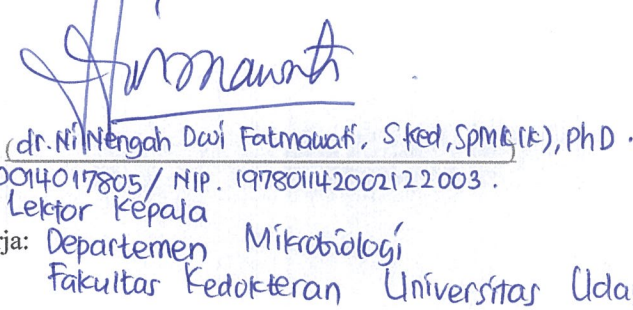 (dr. Ni Nengah Dwi Fatmawati, S Ked, SpMK(K), PhD.
0014017805 / NIP. 197801142002122003.
Lektor Kepala
ja: Departemen Mikrobiologi
Fakultas Kedokteran Universitas Uda